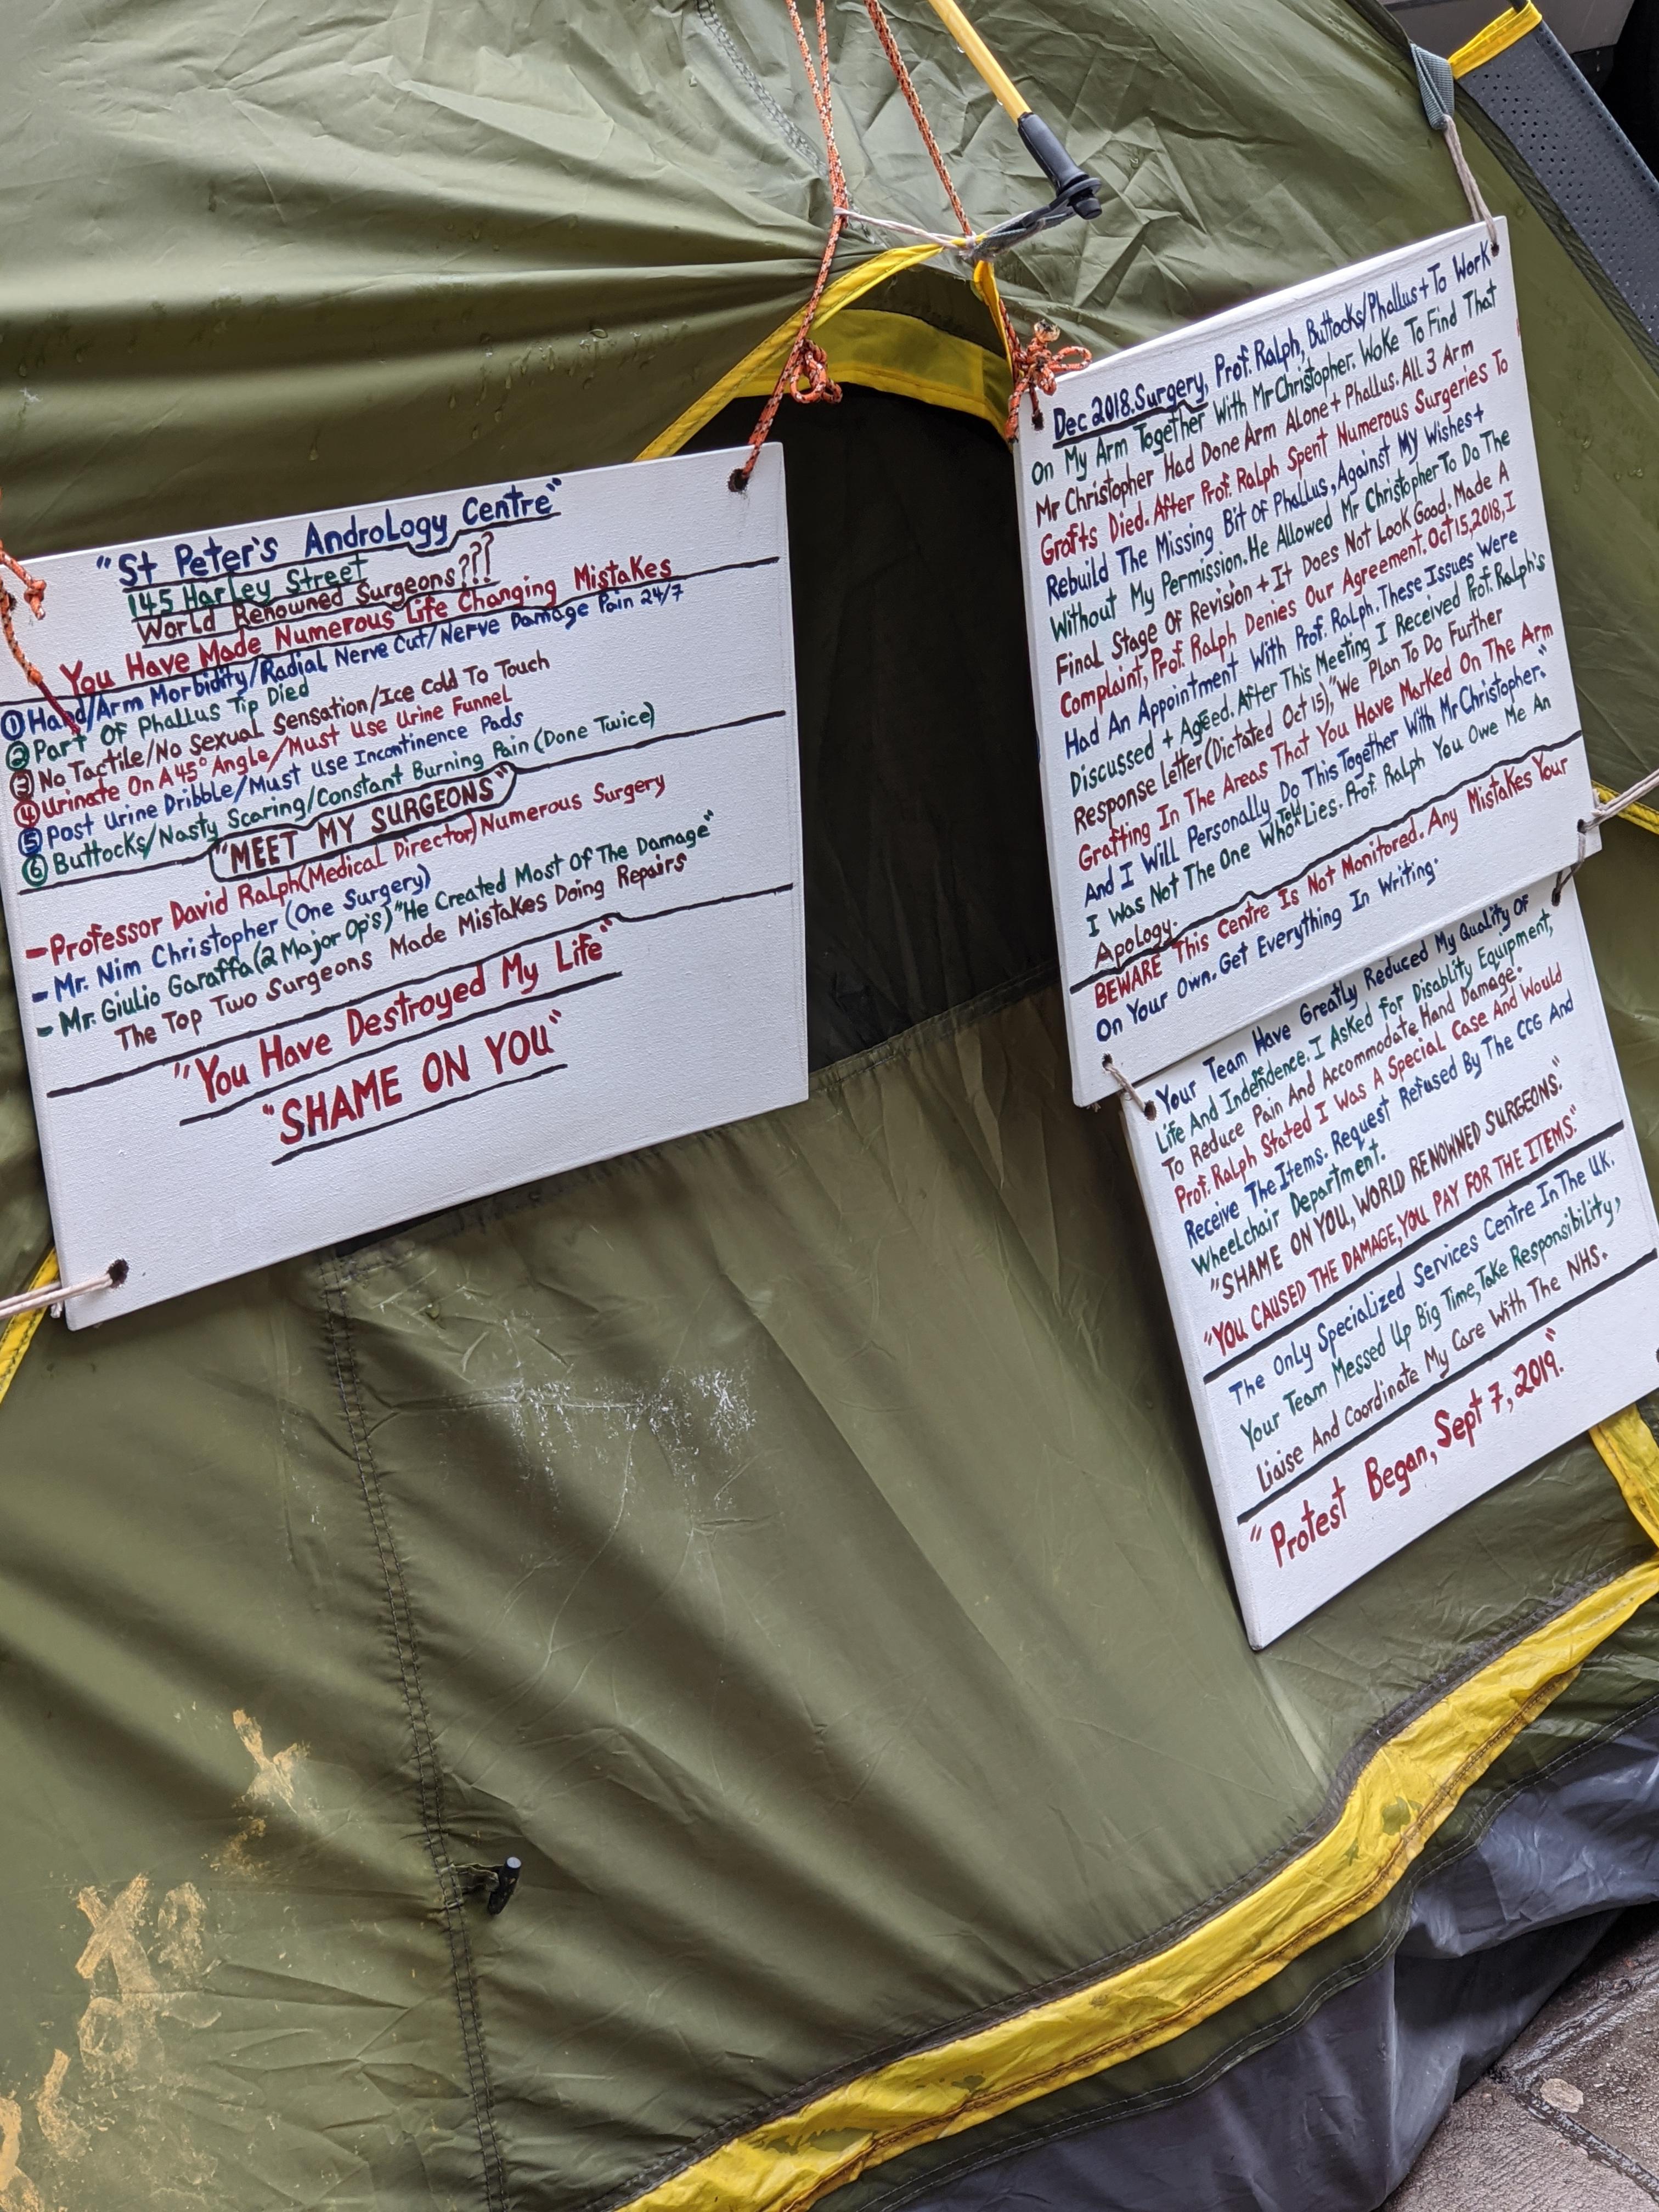 "St Peter's Andrology Centre"
145 Harley Street
World Renowned Surgeons???
You Have Made Numerous Life Changing Mistakes
① Hand/Arm Morbidity/Radial Nerve Cut/Nerve Damage Pain 24/7
② Part Of Phallus Tip Died
③ No Tactile/No Sexual Sensation/Ice Cold To Touch
④ Urinate On A 45° Angle/Must Use Urine Funnel
⑤ Post Urine Dribble/Must Use Incontinence Pads
⑥ Buttocks/Nasty Scaring/Constant Burning Pain (Done Twice)
"MEET MY SURGEONS"
- Professor David Ralph (Medical Director) Numerous Surgery
- Mr. Nim Christopher (One Surgery)
- Mr. Giulio Garaffa (2 Major Op's) "He Created Most Of The Damage"
The Top Two Surgeons Made Mistakes Doing Repairs
"You Have Destroyed My Life"
"SHAME ON YOU"
Dec 2018. Surgery, Prof. Ralph, Buttocks/Phallus + To Work
On My Arm Together With Mr Christopher. Woke To Find That
Mr Christopher Had Done Arm Alone + Phallus. All 3 Arm
Grafts Died. After Prof. Ralph Spent Numerous Surgeries To
Rebuild The Missing Bit Of Phallus, Against My Wishes +
Without My Permission. He Allowed Mr Christopher To Do The
Final Stage Of Revision + It Does Not Look Good. Made A
Complaint, Prof. Ralph Denies Our Agreement. Oct 15, 2018, I
Had An Appointment With Prof. Ralph. These Issues Were
Discussed + Agreed. After This Meeting I Received Prof. Ralph's
Response Letter (Dictated Oct 15), "We Plan To Do Further
Grafting In The Areas That You Have Marked On The Arm
And I Will Personally Do This Together With Mr Christopher."
I Was Not The One Who Told Lies. Prof. Ralph You Owe Me An
Apology.
BEWARE This Centre Is Not Monitored. Any Mistakes Your
On Your Own. Get Everything In Writing.
Your Team Have Greatly Reduced My Quality Of
Life And Independence. I Asked for Disablity Equipment,
To Reduce Pain And Accommodate Hand Damage.
Prof. Ralph Stated I Was A Special Case And Would
Receive The Items. Request Refused By The CCG And
Wheelchair Department.
"SHAME ON YOU, WORLD RENOWNED SURGEONS".
"YOU CAUSED THE DAMAGE, YOU PAY FOR THE ITEMS."
The Only Specialized Services Centre In The UK.
Your Team Messed Up Big Time, Take Responsibility,
Liaise And Coordinate My Care With The NHS.
"Protest Began, Sept 7, 2019."